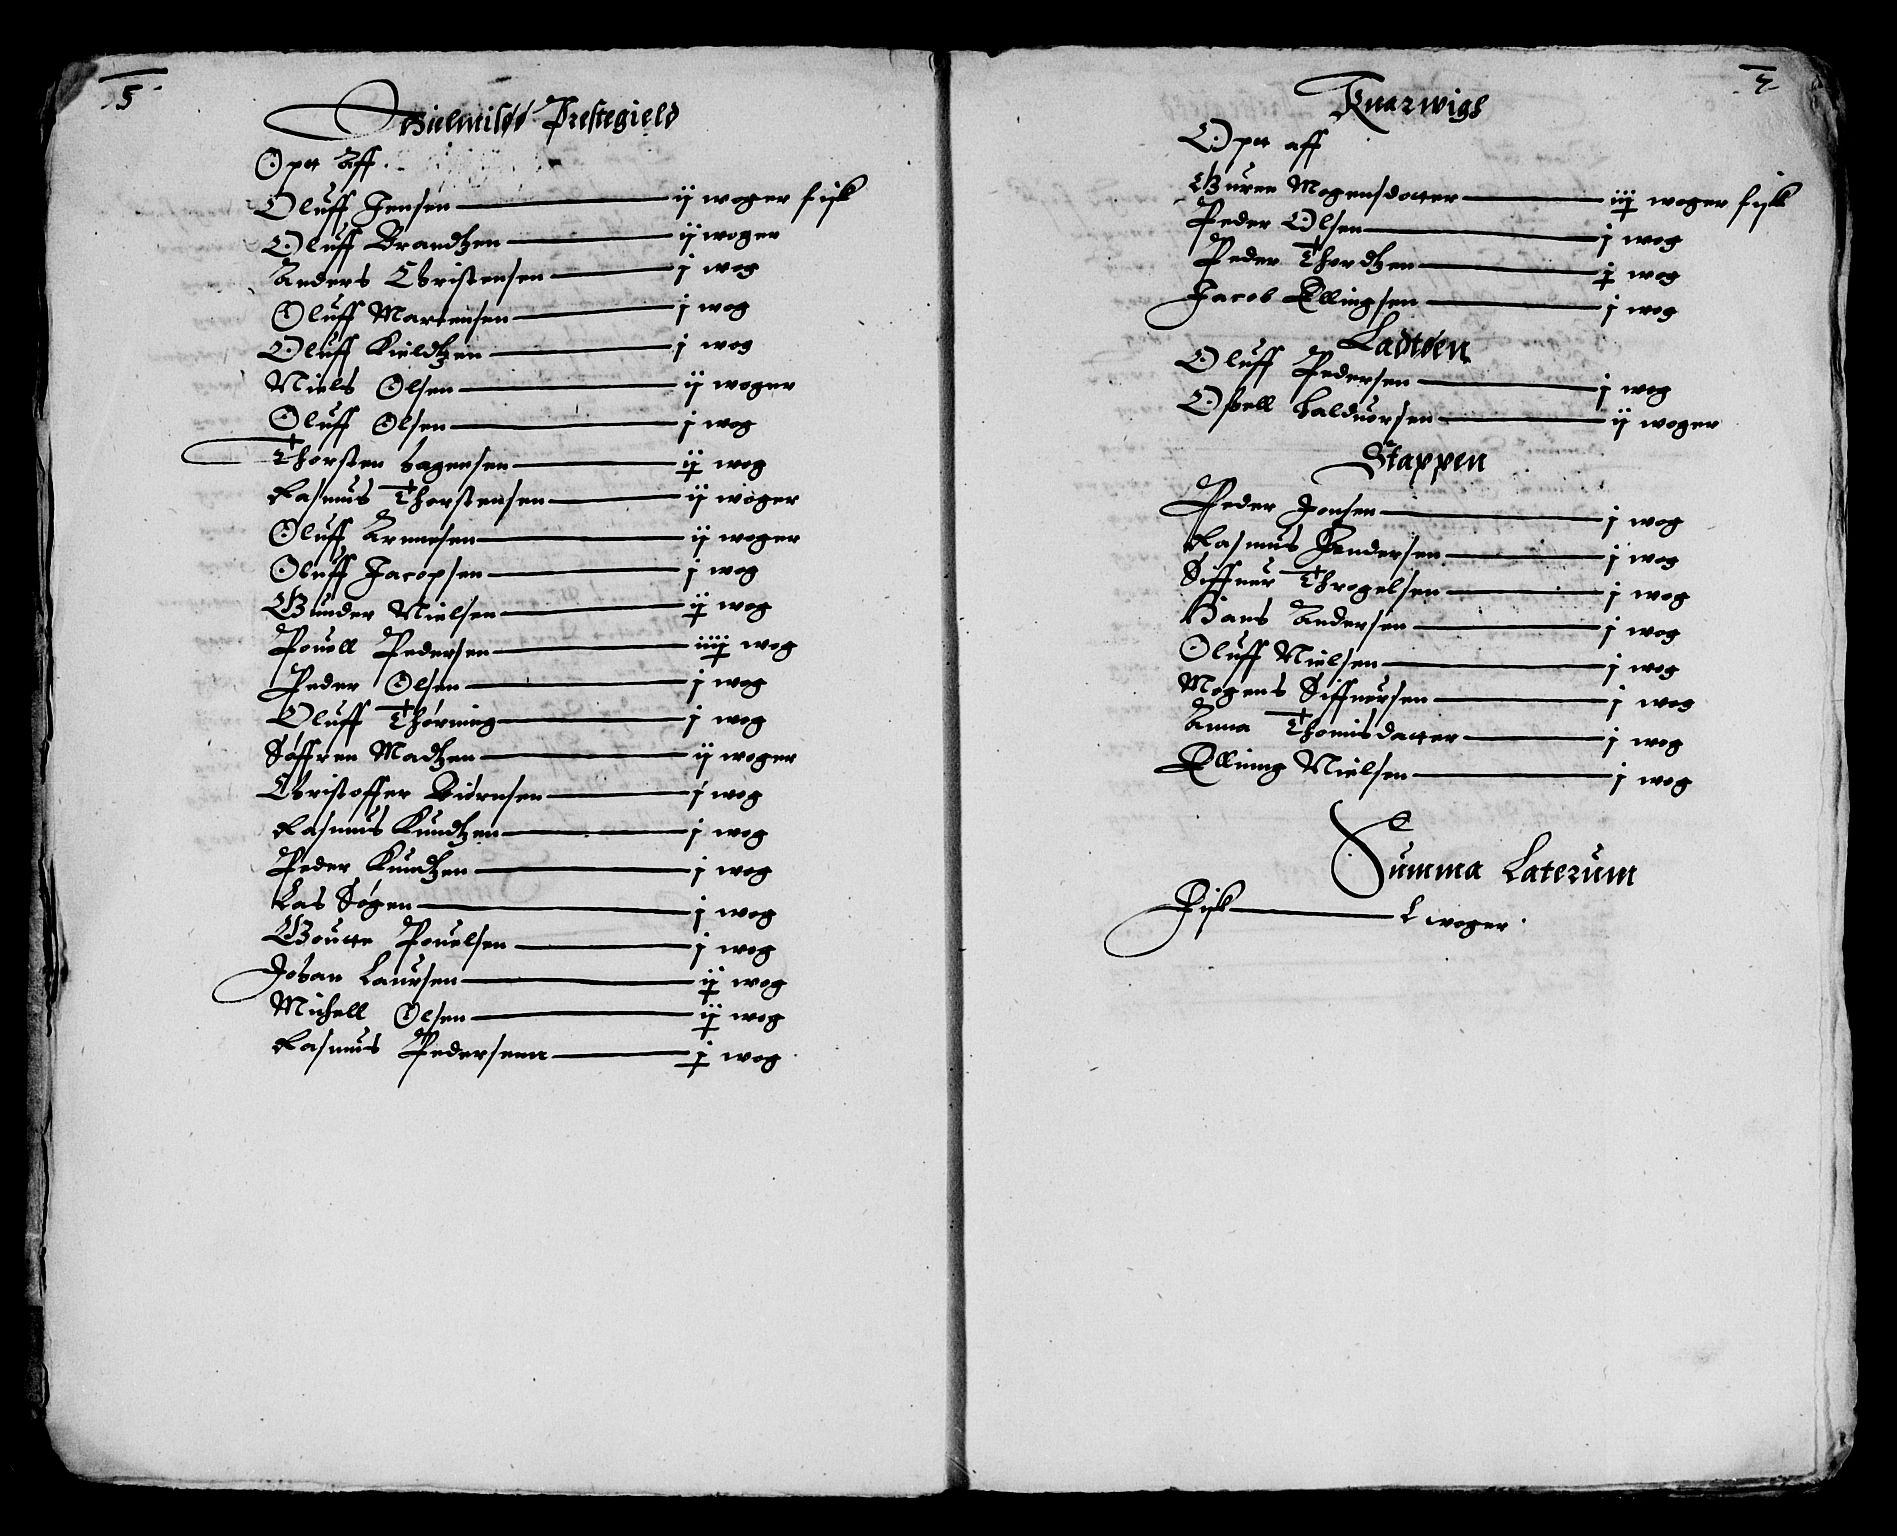 5
Hielmisøe Prestegield
Opt Aff
Oluff Jensen — ij woger fisk
Oluff Brandtzen — ij woger
Anders Christensen — j wog
Oluff Martensen — j wog
Oluff Kieldtzen — j wog
Niels Olsen — ij woger
Oluff Olsen — j wog
Thorsten Hagensen — ij wog
Rasmus Thorstensen — ij woger
Oluff Arnnesen — ij woger
Oluff Jacopsen — j wog
Gunder Nielsen — ij wog
Pouell Pedersen — iiij wog
Peder Olsen — j wog
Oluff Thørning — j wog
Søffren Madtzen — ij woger
Christoffer Biørnsen — j wog
Rasmus Knudtzen — j wog
Peder Knudtzen — j wog
Las Søgen — j wog
Goutte Pouelsen — j wog
Johan Laursen — ij wog
Michell Olsen — ij wog
Rasmus Pedersenn — j wog
Knarwigh
Opt aff
Guren Mogensdotter — iij woger fisk
Peder Olsen — j wog
Peder Thordtzen — j wog
Jacob Ellingsen — j wog
Ladtøen
Oluff Pedersen — j wog
Halduorsen — ij woger
Stappen
Peder Jonsen — j wog
Rasmus Pendersen — j wog
Siffuer Throgelsen — j wog
Hans Andersen — j wog
Oluff Nielsen — j wog
Mogens Siffuersen — j wog
Anna Thomisdatter — j wog
Elling Nielsen — j wog
Summa Laterum
Fisk — L woger